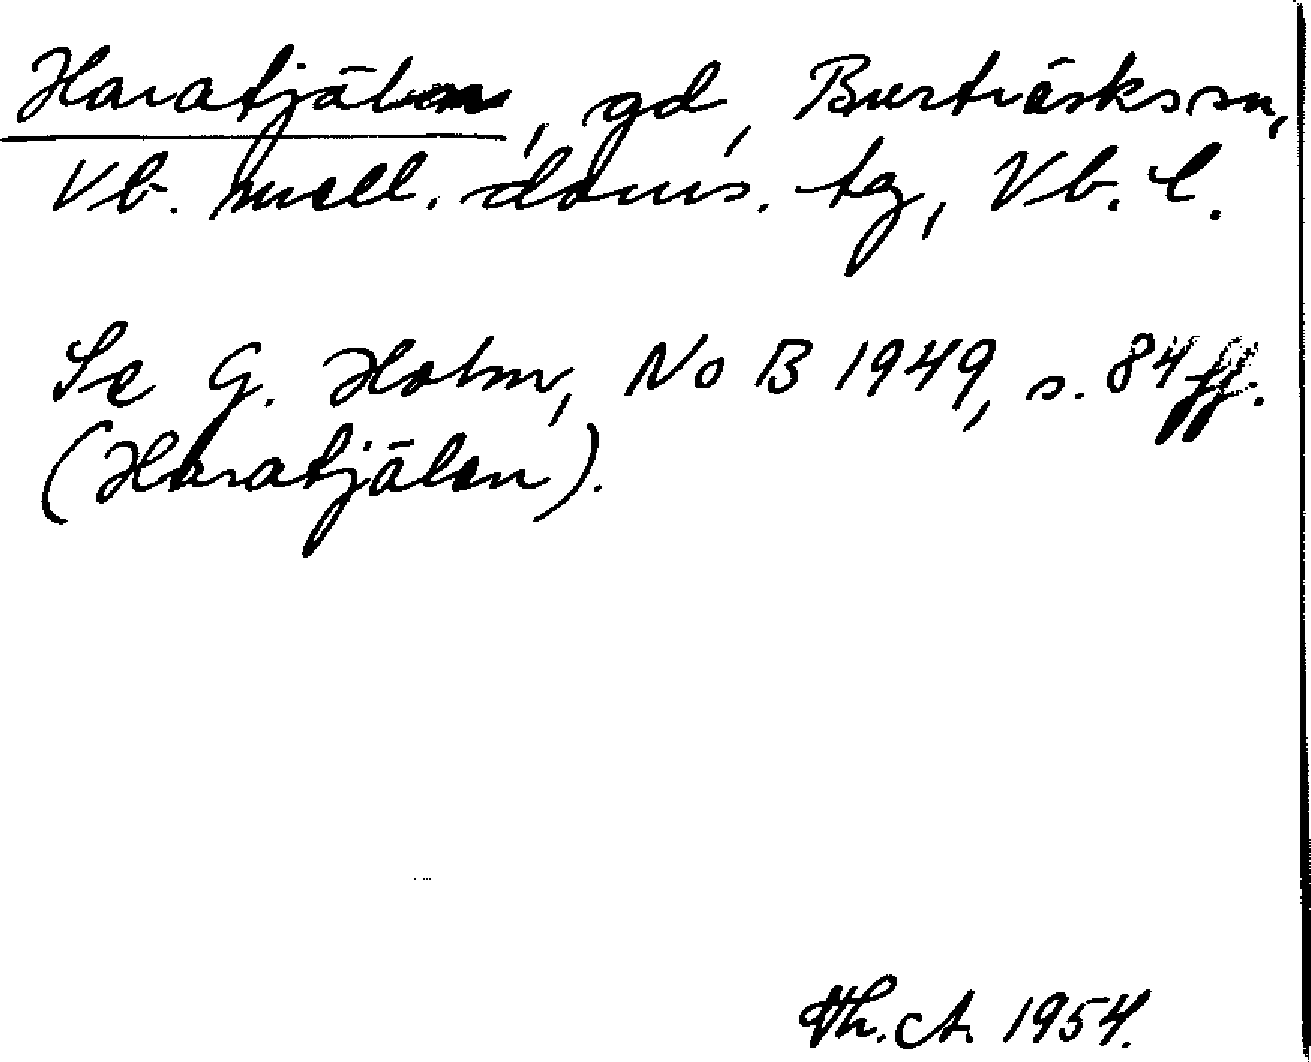 Haratjälen, gd, Burträsks sn,
Vb. mell. doms. tg, Vb. l.
Se G. Holm, NoB 1949, s. 84 ff.
(Haratjälen).
Th. A. 1954.